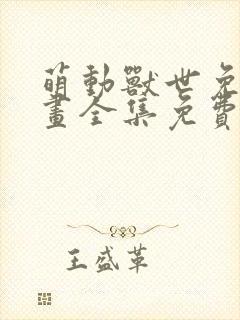 萌動獸世免
畫全集免費
王盛革